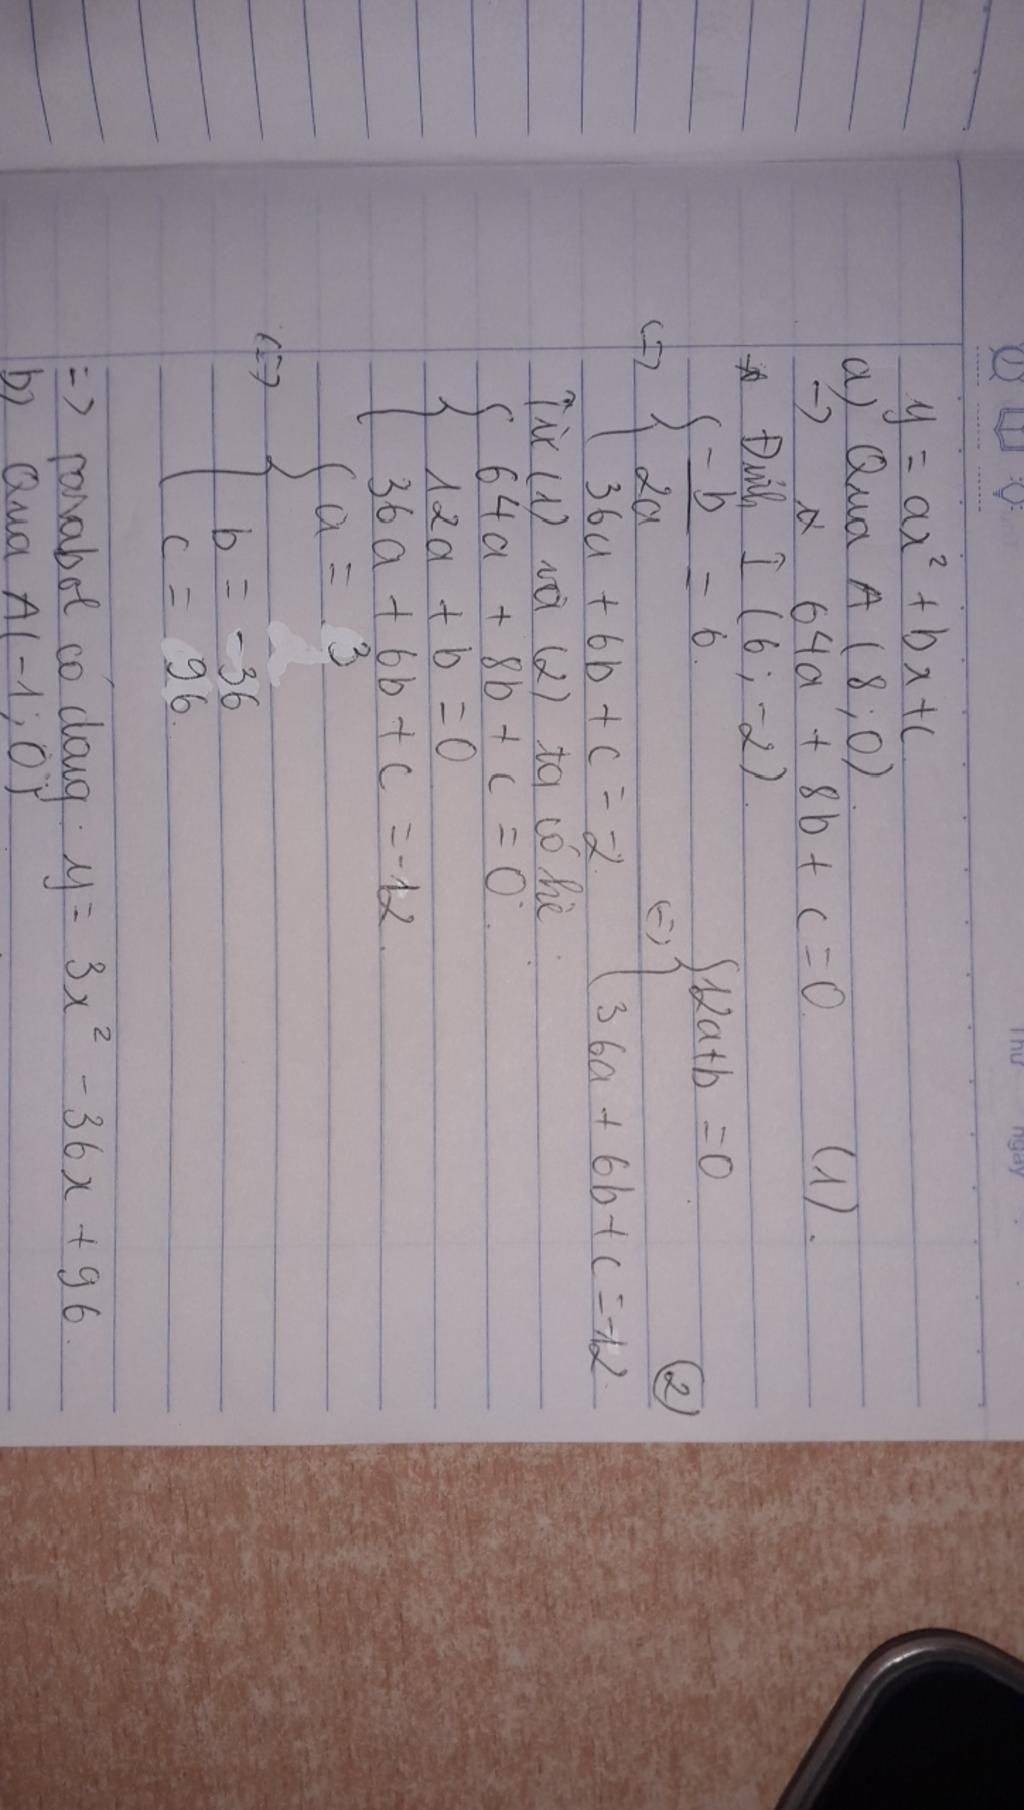 Thứ ngày
y = ax² + bx + c
a) Qua A (8; 0)
=> 64a + 8b + c = 0 (1).
* Đỉnh I (6; -2)
(=) { -b/2a = 6. (=) { 12a + b = 0 (2)
36a + 6b + c = -2. 36a + 6b + c = -12.
Từ (1) và (2) ta có hệ.
{ 64a + 8b + c = 0.
12a + b = 0
36a + 6b + c = -12.
(=) { a = 3
b = -36
c = 96.
=> parabol có dạng: y = 3x² - 36x + 96.
b) Qua A(-1; 0)